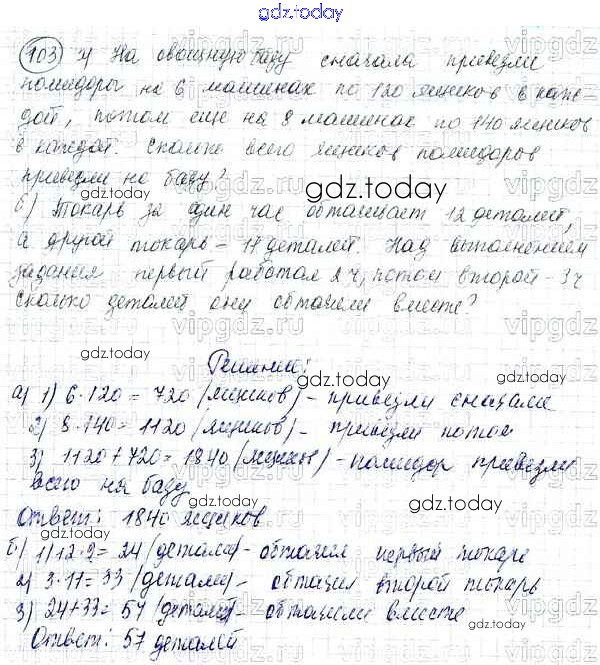 gdz.today
103 а) На овощную базу сначала привезли
помидоры на 6 машинах по 120 ящиков в каж
дой, потом еще на 8 машинах по 140 ящиков
в каждой. Сколько всего ящиков помидоров
привезли на базу?
gdz.today
gdz.today
б) Токарь за один час обтачивает 12 деталей,
а другой токарь – 11 деталей. Над выполнением
задания первый работал 2 ч, потом второй – 3 ч
сколько деталей они обточили вместе?
gdz.today
gdz.today
Решение:
gdz.today
а) 1) 6 · 120 = 720 (ящиков) – привезли сначала
2) 8 · 140 = 1120 (ящиков) – привезли потом
3) 1120 + 720 = 1840 (ящиков) – помидор привезли
всего на базу
gdz.today
Ответ: 1840 ящиков
б) 1) 12 · 2 = 24 (детали) – обточил первый токарь
2) 3 · 11 = 33 (детали) – обточил второй токарь
3) 24 + 33 = 57 (деталей) – обточили вместе
Ответ: 57 деталей
gdz.today
vipgdz.ru